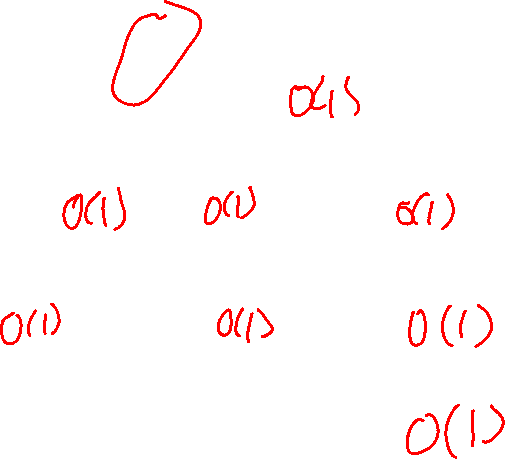 O
O(1)
O(1) O(1) O(1)
O(1) O(1) O(1)
O(1)